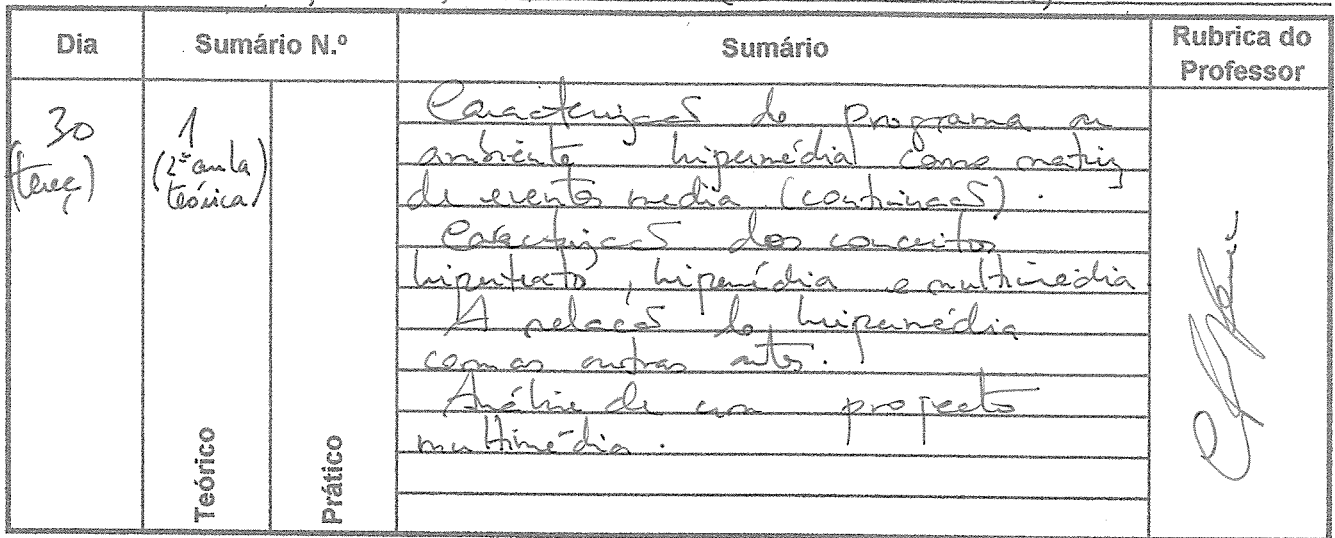 Dia Sumário N.º Sumário Rubrica do Professor
30
(terç)
1
(2ª aula
teórica)
Teórico
Prático
Caracterização do programa ou
ambiente hipermédia como matriz
de eventos media (continuação).
Caracterização dos conceitos
hipertexto, hipermédia e multimédia
A relação do hipermédia
com as outras artes.
Análise de um projecto
multimédia.